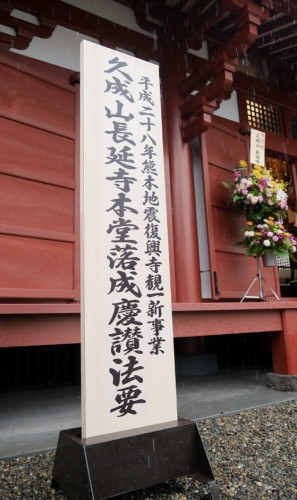 平成二十八年熊本地震復興寺観一新事業
久成山長延寺本堂落成慶讃法要